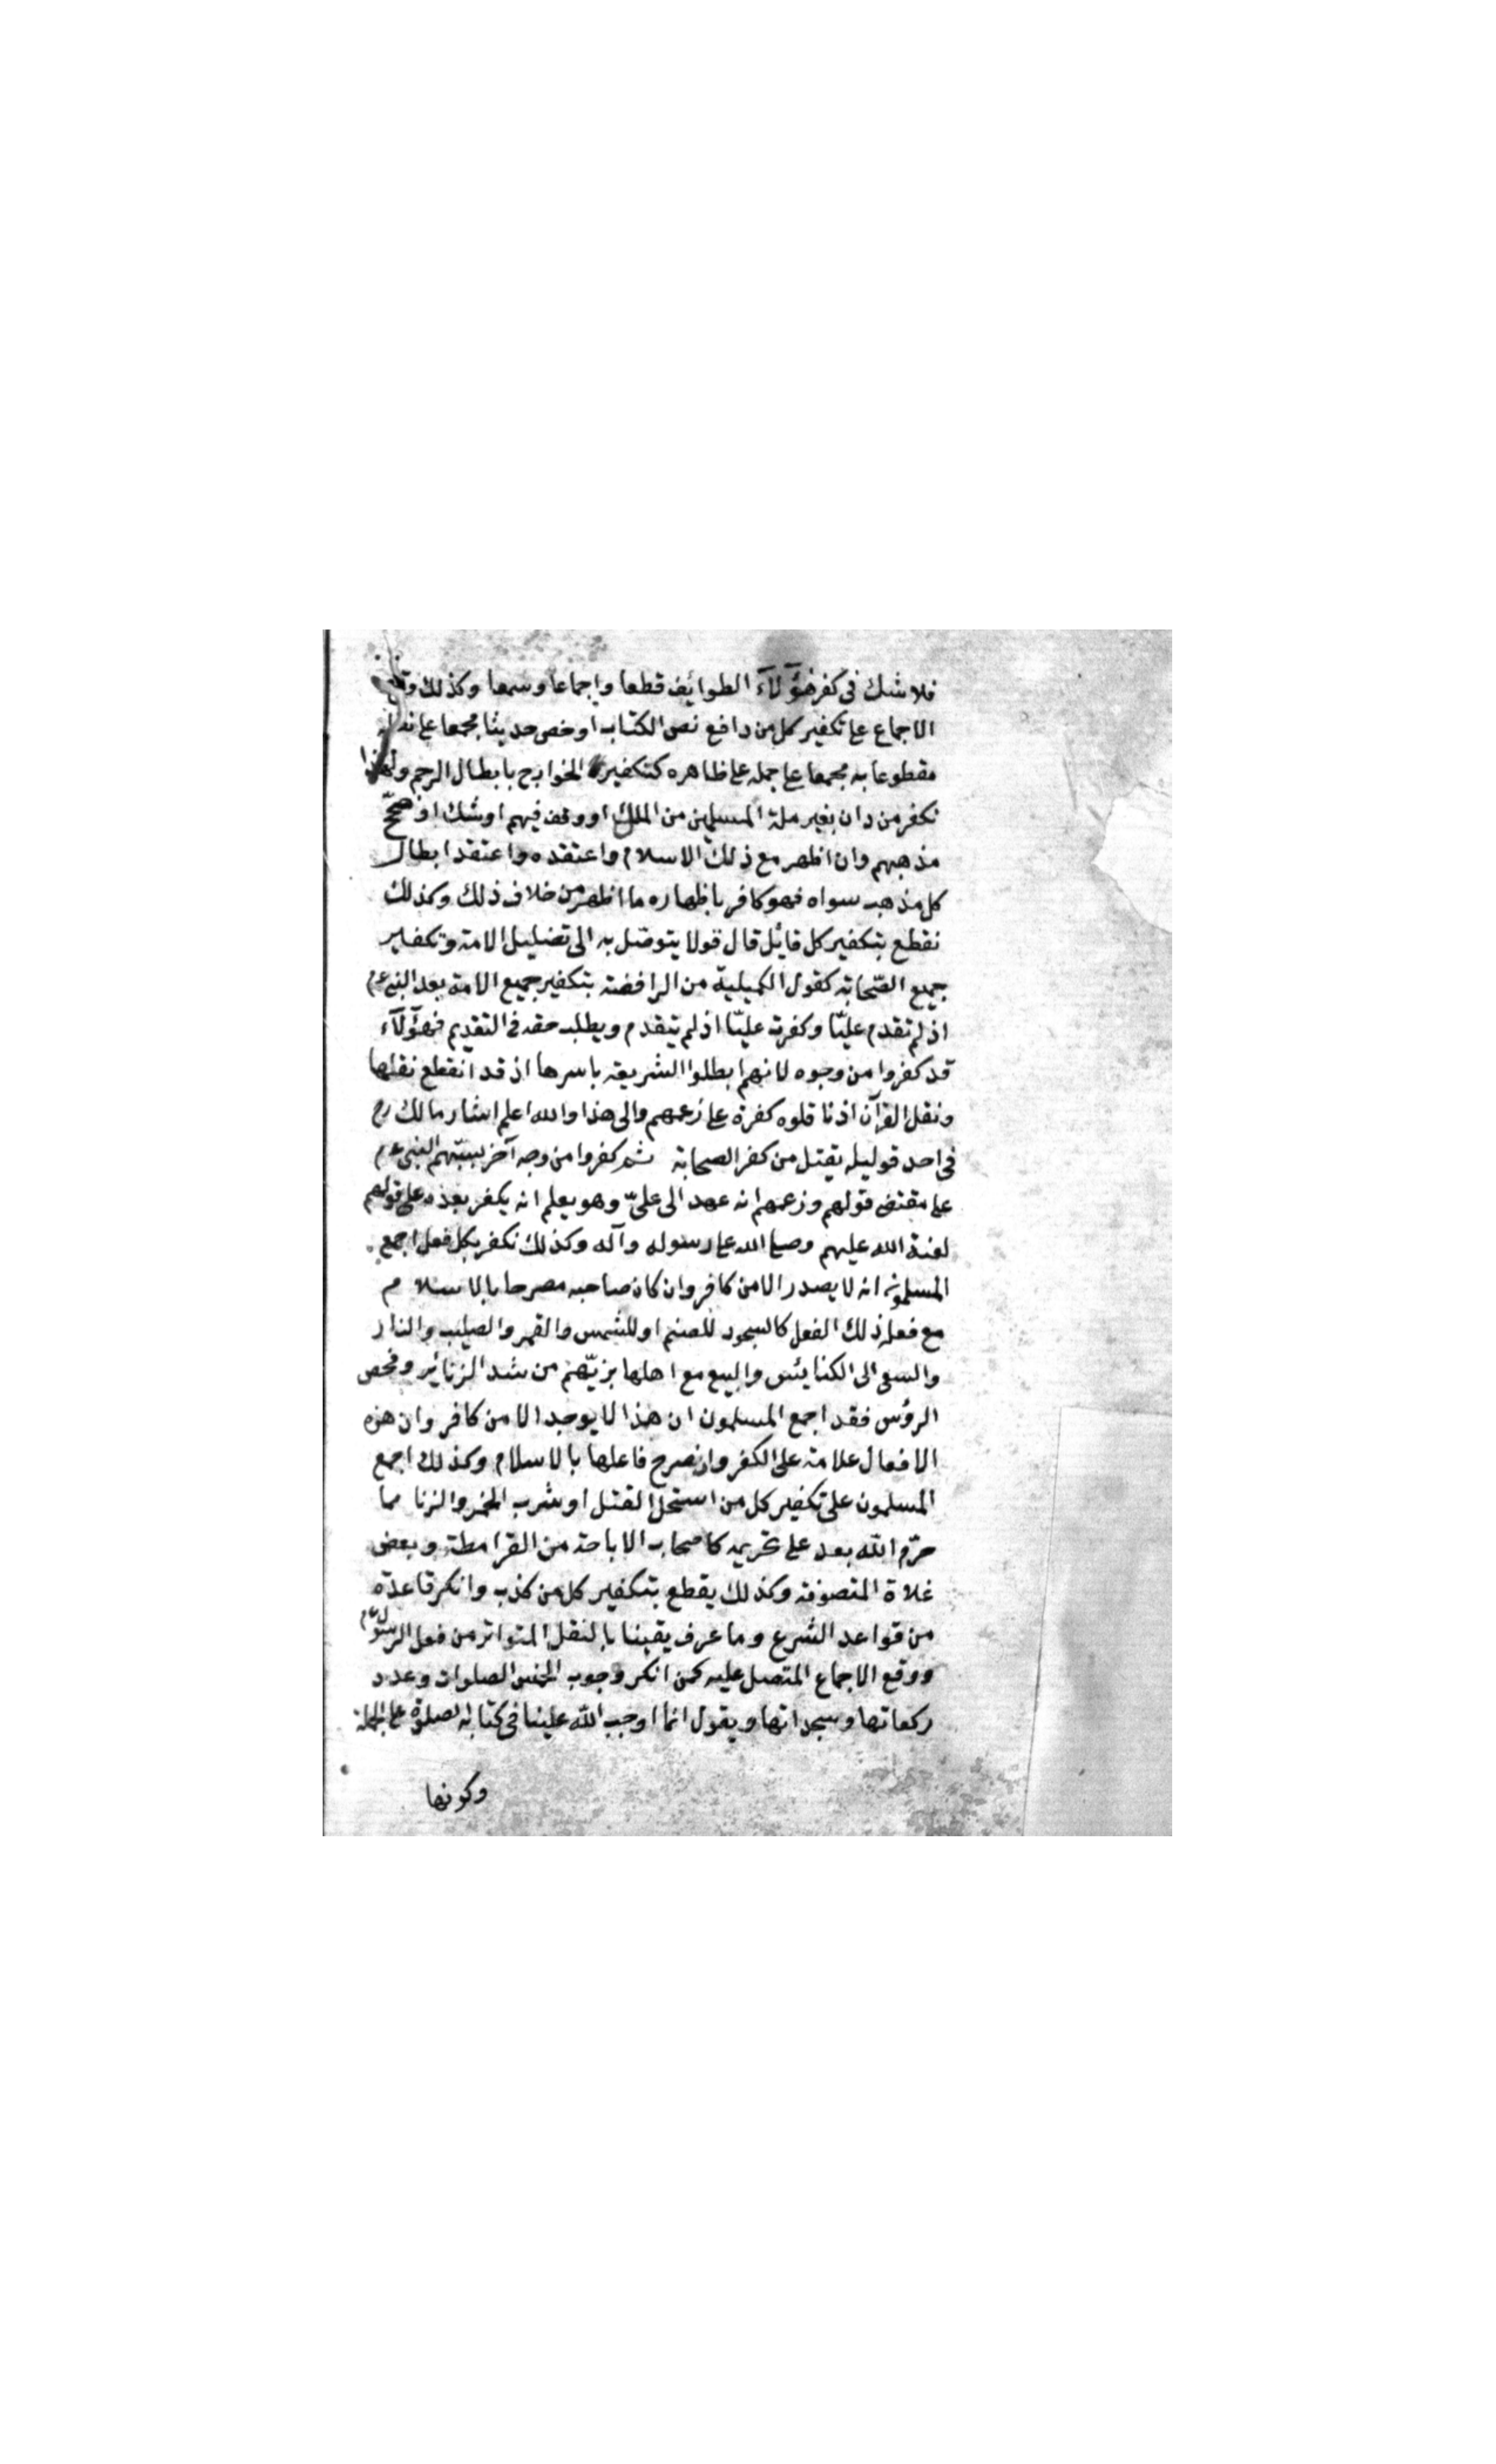 فلا شك فى كفر هؤلآء الطوائف قطعا واجماعا وسمعا وكذلك وقع
الاجماع على تكفير كل من دافع نص الكتاب او خص حديثا مجمعا على نقله
مقطوعا به مجمعا على حمله على ظاهره كتكفير الخوارج بابطال الرجم ولهذا
نكفر من دان بغير ملة المسلمين من الملل او وقف فيهم او شك او صحّح
مذهبهم وان اظهر مع ذلك الاسلام واعتقده واعتقد ابطال
كل مذهب سواه فهو كافر باظهاره ما اظهر من خلاف ذلك وكذلك
نقطع بتكفير كل قائل قال قولا يتوصل به الى تضليل الامة وتكفير
جميع الصّحابة كقول الكميلية من الرافضة بتكفير جميع الامة بعد النبى عم
اذ لم تقدم عليّا وكفرت عليّا اذ لم يتقدم ويطلب حقه فى التقديم فهؤلآء
قد كفروا من وجوه لانهم ابطلوا الشريعة باسرها اذ قد انقطع نقلها
ونقل القرآن اذ ناقلوه كفرة على زعمهم والى هذا والله اعلم اشار مالك رح
فى احد قوليه بقتل من كفر الصحابة ثم كفروا من وجه آخر بسبّهم النبى عم
على مقتضى قولهم وزعمهم انه عهد الى علىّ وهو يعلم انه يكفر بعده على قولهم
لعنة الله عليهم وصلى الله على رسوله وآله وكذلك نكفر بكل فعل اجمع
المسلمون انه لا يصدر الا من كافر وان كان صاحبه مصرحا بالاسلام
مع فعله ذلك الفعل كالسجود للصنم او للشمس والقمر والصليب والنار
والسعى الى الكنايئس والبيع مع اهلها بزيّهم من شد الزنائير وفحص
الرؤس فقد اجمع المسلمون ان هذا لا يوجد الا من كافر وان هذه
الافعال علامة على الكفر وان صرح فاعلها بالاسلام وكذلك اجمع
المسلمون على تكفير كل من استحل القتل او شرب الخمر والزنا مما
حرّم الله بعد على تحريمه كاصحاب الاباحة من القرامطة وبعض
غلاة المتصوفة وكذلك يقطع بتكفير كل من كذب وانكر قاعدة
من قواعد الشرع وما عرف يقينا بالنقل المتواتر من فعل الرسول عم
ووقع الاجماع المتصل عليه كمن انكر وجوب الخمس الصلوات وعدد
ركعاتها وسجداتها ويقول انما اوجب الله علينا فى كتابه الصلوة على الجملة
وكونها